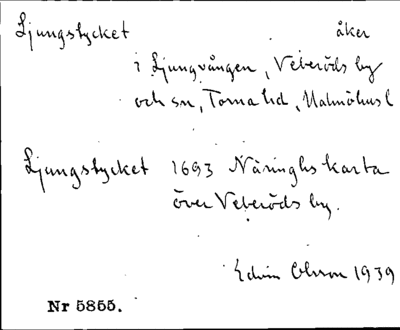 Ljungstycket åker
i Ljungvången, Veberöds by
och sn, Torna hd, Malmöhus l
Ljungstycket 1693 Näringhs karta
över Veberöds by.
Edvin Ohlson 1939
Nr 5855.